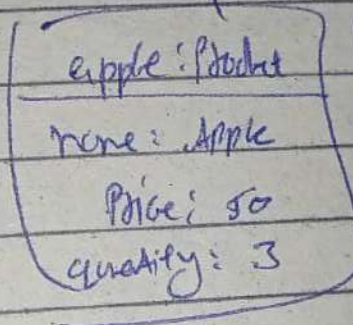 apple: Product
name: Apple
Price: 50
quantity: 3